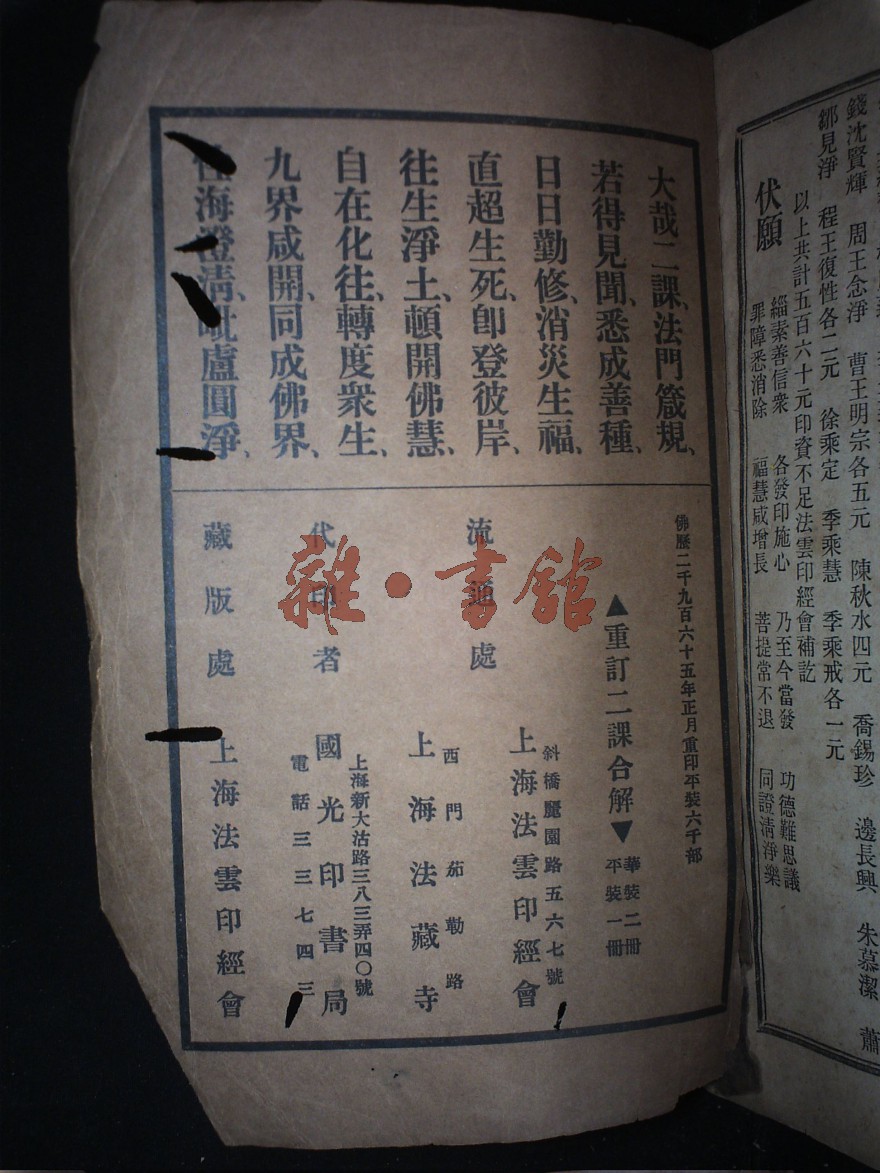 錢沈賢輝　周王念淨　曹王明宗各五元　陳秋水四元　喬錫珍　邊長興　朱慕潔　蕭
鄒見淨　程王復性各二元　徐乘定　季乘慧　季乘戒各一元
以上共計五百六十元印資不足法雲印經會補訖
伏願
緇素善信衆　各發印施心　乃至今當發　功德難思議
罪障悉消除　福慧咸增長　菩提常不退　同證清淨樂
大哉二課、法門箴規、
若得見聞、悉成善種、
日日勤修、消災生福、
直超生死、卽登彼岸、
往生淨土、頓開佛慧、
自在化往、轉度衆生、
九界咸開、同成佛界、
性海澄清、毗盧圓淨、
佛歷二千九百六十五年正月重印平裝六千部
▲重訂二課合解▼
華裝二冊
平裝一冊
流通處
斜橋麗園路五六七號
上海法雲印經會
西門茄勒路
上海法藏寺
代印者
上海新大沽路三八三弄四〇號
國光印書局
電話三三七四三
藏版處　上海法雲印經會
雜·書館